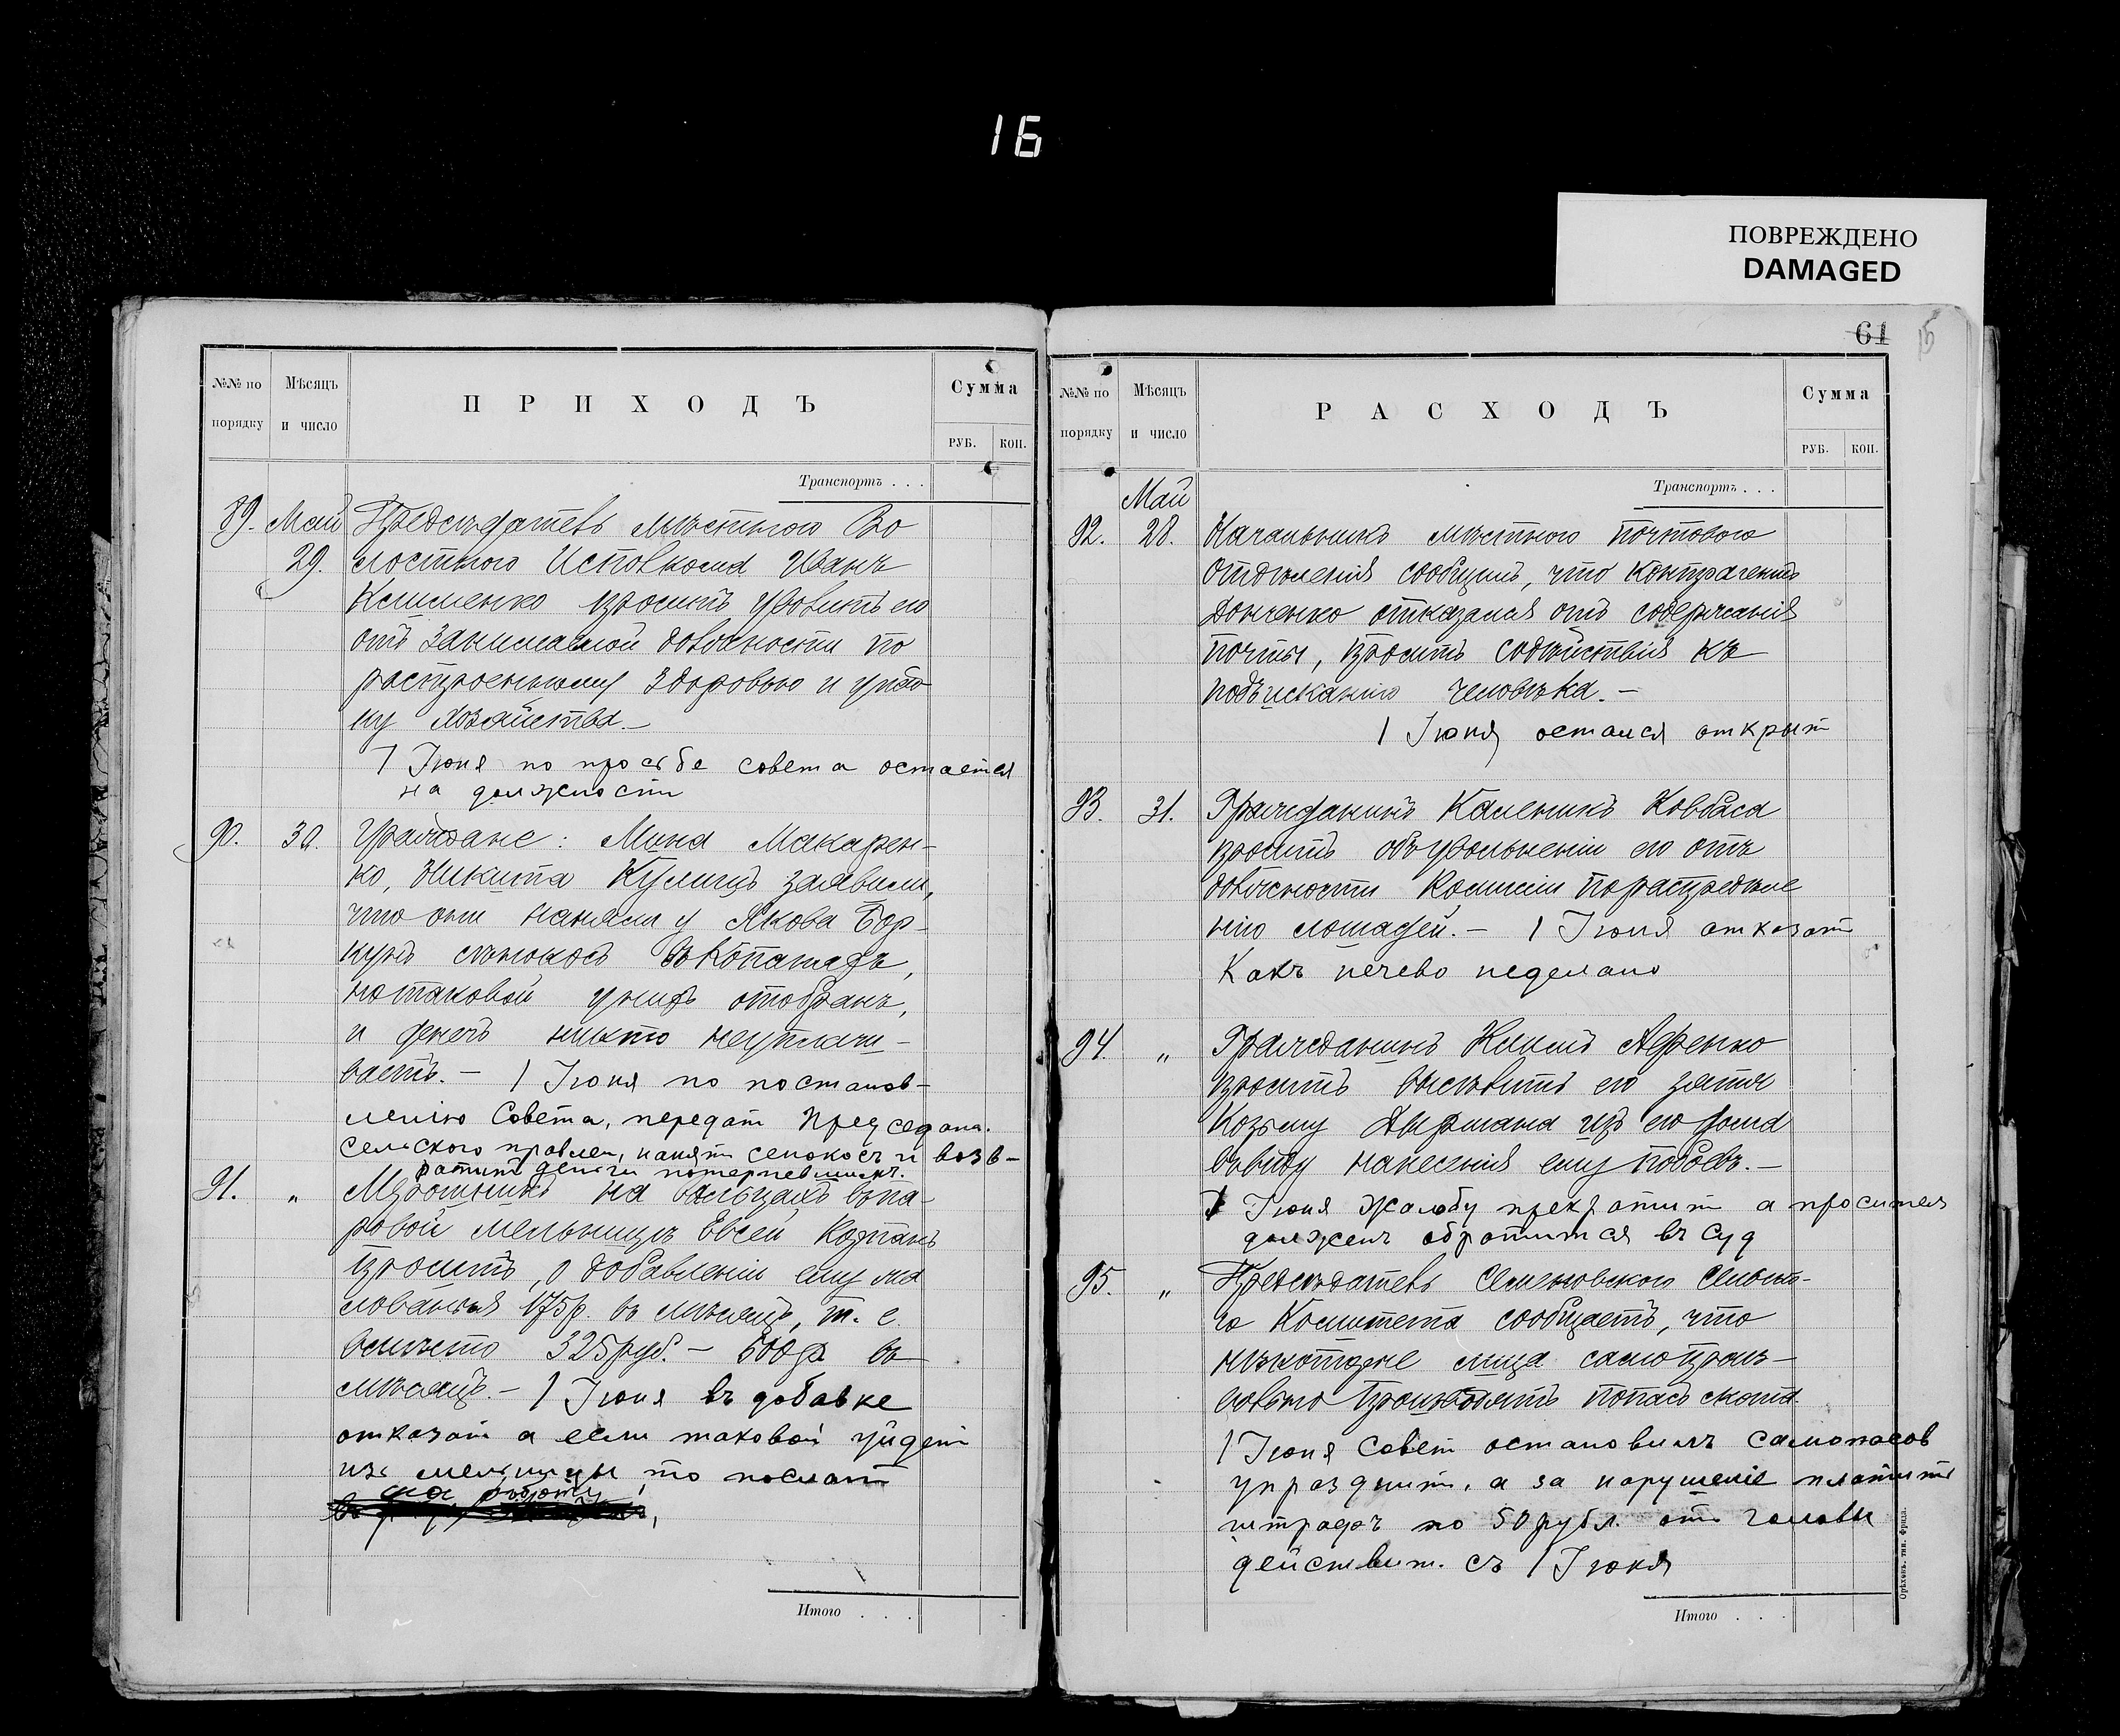 16
ПОВРЕЖДЕНО
DAMAGED
№№ по порядку
Мѣсяцъ и число
ПРИХОДЪ
Сумма
РУБ. КОП.
Транспортъ . . .
89. Май Предсѣдатель мѣстнаго Во
29. лостного Исполкома Иванъ
Клименко проситъ уволить его
отъ занимаемой должности по
растроенному здоровью и упад
ку хозяйства.—
1 Іюня по просьбе совета остается
на должности
90. 30. Граждане: Мина Макарен-
ко, Никита Кулишъ заявили,
что они наняли у Якова Бор-
сѣнокосъ
но таковой у нихъ отобранъ,
и денегъ никто неуплачи-
ваетъ.— 1 Іюня по постанов-
ленію Совета, передат Председат.
сельского правлен, нанят сенокосъ и возв-
ратить деньги потерпевшимъ.
91. „ Мѣрошникъ на вальцахъ въ па-
ровой мельницѣ Евсей
проситъ, о добавленіи ему жа
лованья 175р. въ мѣсяцъ, т. е.
вмѣсто 325 руб.— 500 р. въ
мѣсяцъ.— 1 Іюня въ добавке
отказат а если таковой уйдет
изъ мельницы, то послат
на работу
Итого . . .
61
15
№№ по порядку
Мѣсяцъ и число
РАСХОДЪ
Сумма
РУБ. КОП.
Транспортъ . . .
Май
92. 28. Начальникъ мѣстнаго почтоваго
отдѣленія сообщилъ, что контрагентъ
Донченко отказался отъ содержанія
почты, проситъ содѣйствія къ
подъисканію человѣка.—
1 Іюня остался открыт
93. 31. Гражданинъ Каленикъ Ковбаса
проситъ объ увольненіи его отъ
должности Комисіи по распредѣле
нію лошадей.— 1 Іюня отказат
Какъ нечево неделано
94. „ Гражданинъ Климъ
проситъ выселить его зятя
Козьму изъ его дома
ввиду нанесенія ему побоевъ.—
1 Іюня Жалобу прекратит а проситель
должен обратится въ суд
95. „ Предсѣдатель Семеновского Сельск-
го Комитета сообщаетъ, что
нѣкоторые лица самопроиз-
вольно производятъ попасъ скота.
1 Іюня Совет остановилъ самопасов
упразднит, а за нарушеніе платит
штрафъ по 50 рубл. от головы
действит. съ 1 Іюня
Итого . . .
Орѣховъ. тип. Фрида.